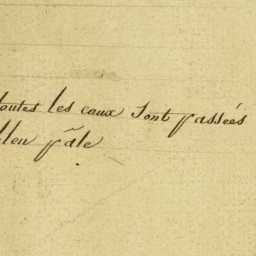 toutes les eaux sont passées
bleu pâle